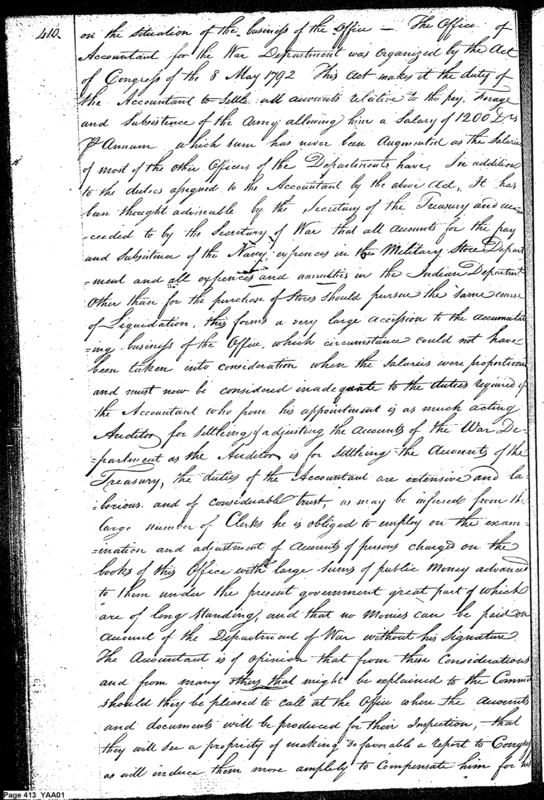 410.
on the situation of the business of the Office — The Office of
Accountant for the War Department was organized by the Act
of Congress of the 8 May 1792 This Act makes it the duty of
the Accountant to settle all accounts relative to the pay, Forage
and Subsistence of the Army allowing him a Salary of 1200 Drs
Pr Annum, which sum has never been Augmented as the Salaries
of most of the other Officers of the Departments have, In addition
to the duties assigned to the Accountant by the above Act, It has
been thought adviseable by the Secretary of the Treasury and ac=
=ceeded to by the Secretary of War that all Accounts for the pay
and Subsistence of the Navy, expences in the Military Store Depart
=ment and all expences and annuities in the Indian Department
Other than for the purchase of Stores should pursue the same course
of Liquidation, this forms a very large accession to the accumulat
=ing business of the Office, which circumstance could not have
been taken into consideration when the Salaries were proportioned
and must now be considered inadequate to the duties required of
the Accountant who from his appointment is as much acting
Auditor for settling & adjusting the Accounts of the War De=
=partment as the Auditor is for settling the Accounts of the
Treasury, the duties of the Accountant are extensive and la=
=borious and of considerable trust, as may be infered from the
large number of Clerks he is obliged to employ on the exam=
=ination and adjustment of Accounts of persons charged on the
books of this Office with large sums of public Money advanced
to them under the present government great part of which
are of long standing, and that no Monies can be paid on
Account of the Department of War without his Signature
The Accountant is of opinion that from these Considerations
and from many others that might be explained to the Committee
should they be pleased to call at the Office where the Accounts
and documents will be produced for their Inspection, that
they will see a propriety of making so favorable a report to Congress
as will induce them more amplely to Compensate him for his
Page 413 YAA01